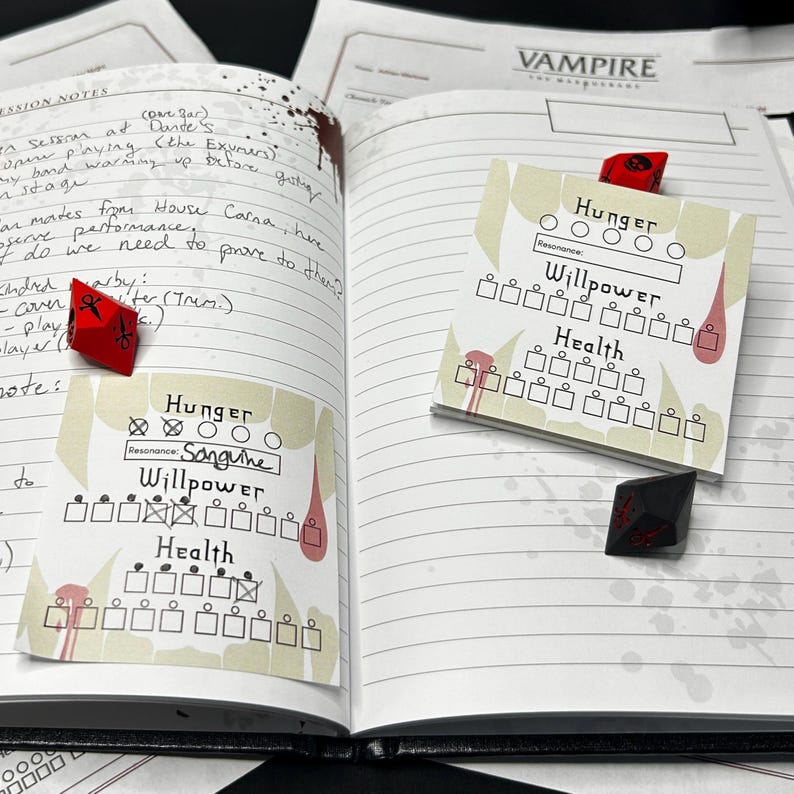 VAMPIRE
THE MASQUERADE
SESSION NOTES
(Dive Bar)
session at Dante's
opener playing (the Exumers)
my band warming up before going
stage
mates from House Carna, here
observe performance.
do we need to prove to them?
kindred nearby:
- cover (Trem.)
- play
player
note:
to
Hunger
Resonance: Sanguine
Willpower
Health
Hunger
Resonance:
Willpower
Health